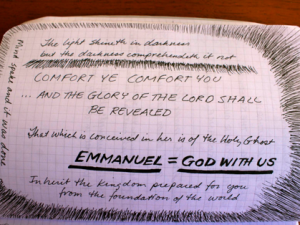 The light shineth in darkness
but the darkness comprehendeth it not
COMFORT YE COMFORT YOU
... AND THE GLORY OF THE LORD SHALL
BE REVEALED
That which is conceived in her is of the Holy Ghost
EMMANUEL = GOD WITH US
Inherit the kingdom prepared for you
from the foundation of the world
and it was done